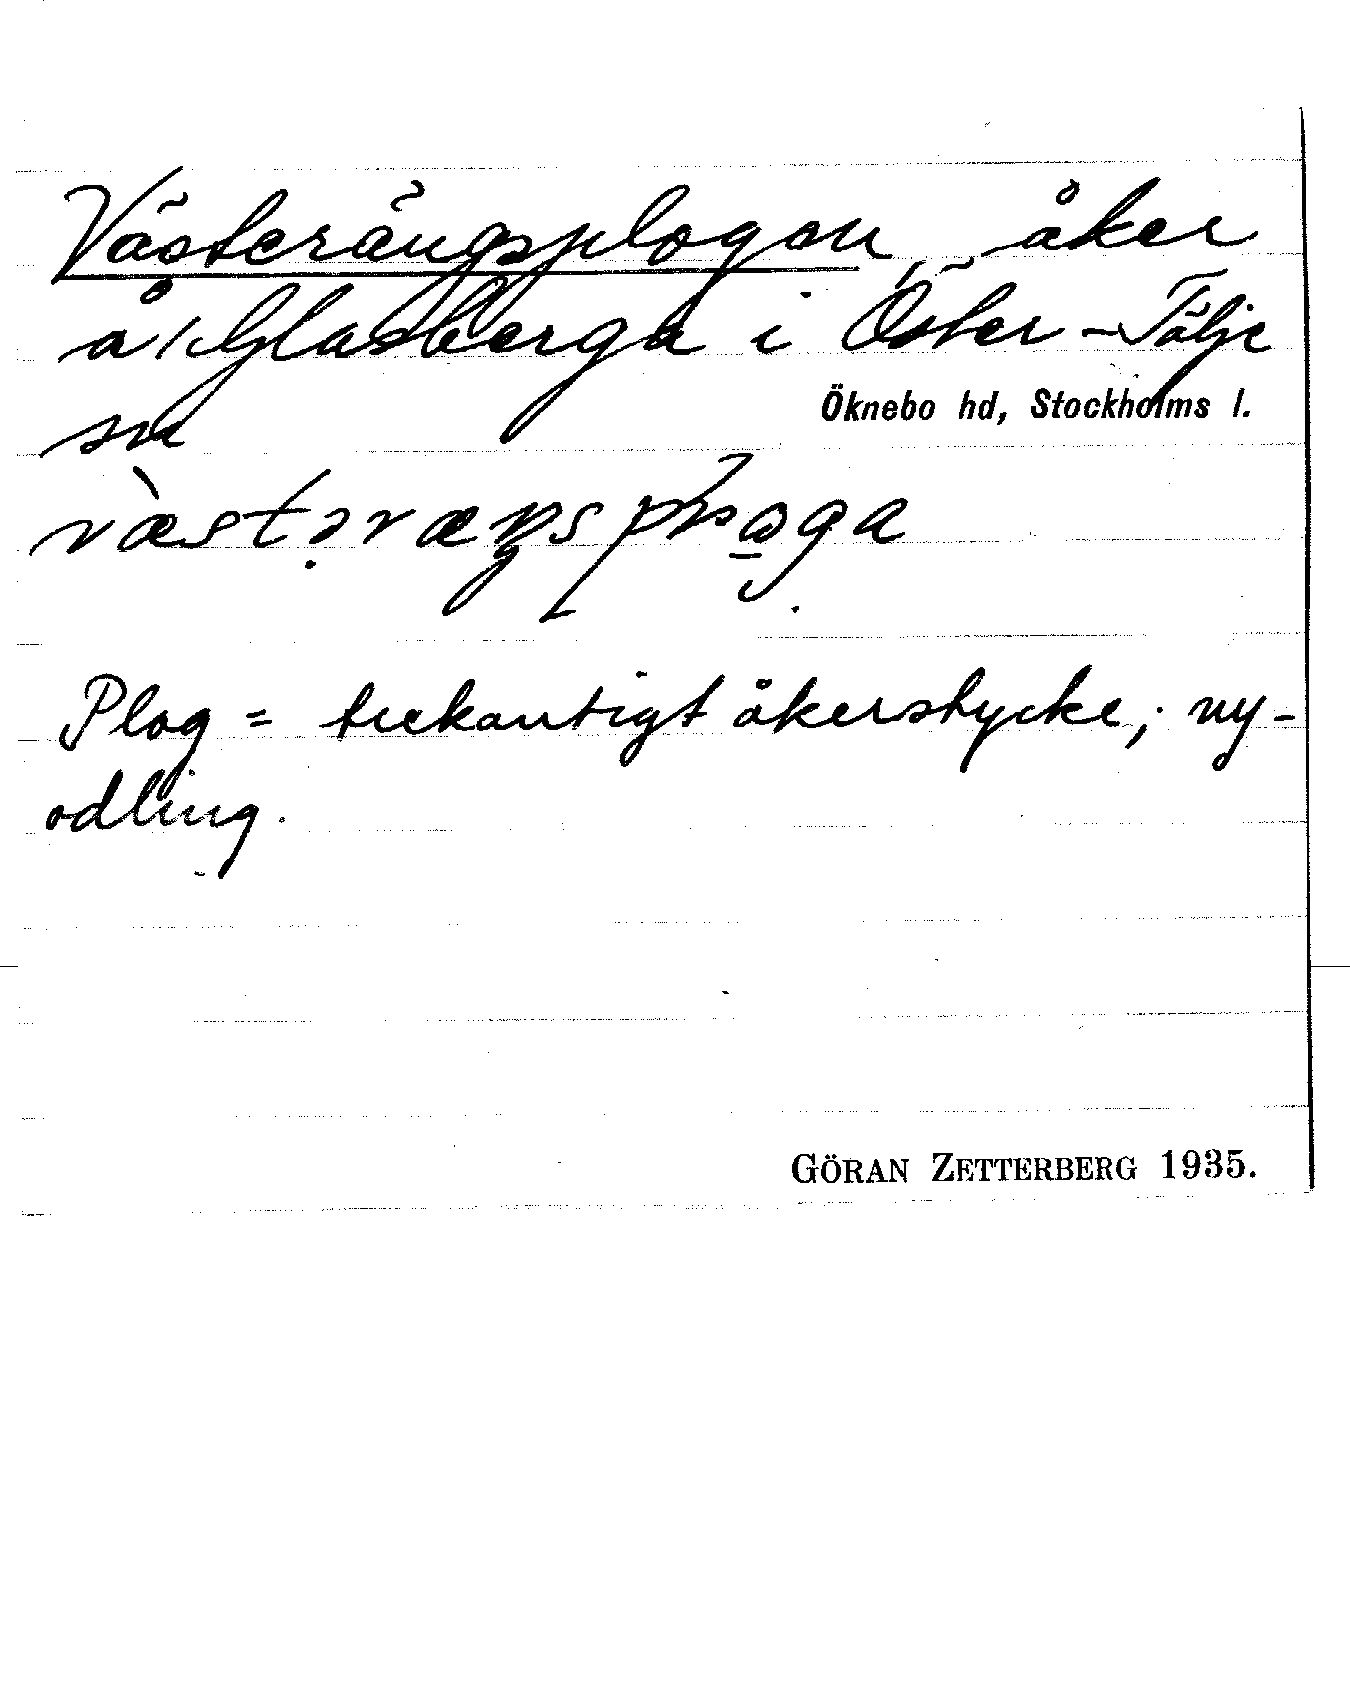 Västerängsplogen, åker
å Glasberga i Öster-Tälje
sn
Öknebo hd, Stockholms l.
Plog = trekantigt åkerstycke; ny-
odling.
GÖRAN ZETTERBERG 1935.